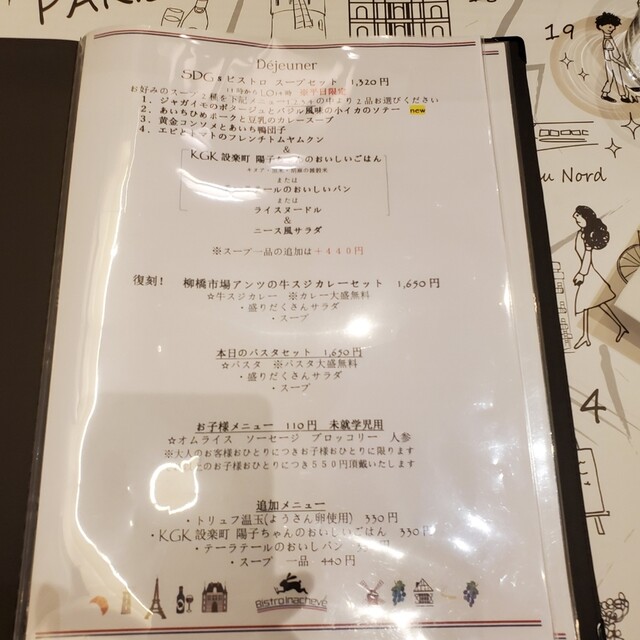 PARIS
19
u Nord
4
Déjeuner
SDGsビストロ スープセット 1,320円
お好みのスープ2種を下記メニュー1,2,3,4の中より2品お選びください
※平日限定
1. ジャガイモのポタージュとバジル風味の小イカのソテー new
2. あいちひめポークと豆乳のカレースープ
3. 黄金コンソメとあいち鴨団子
4. エビとトマトのフレンチトムヤムクン
&
KGK 設楽町 陽子ちゃんのおいしいごはん
または
テールのおいしいパン
または
ライスヌードル
&
ニース風サラダ
※スープ一品の追加は+440円
復刻! 柳橋市場アンツの牛スジカレーセット 1,650円
☆牛スジカレー ※カレー大盛無料
・盛りだくさんサラダ
・スープ
本日のパスタセット 1,650円
☆パスタ ※パスタ大盛無料
・盛りだくさんサラダ
・スープ
お子様メニュー 110円 未就学児用
☆オムライス ソーセージ ブロッコリー 人参
※大人のお客様おひとりにつきお子様おひとりに限ります
以上のお子様おひとりにつき550円頂戴いたします
追加メニュー
・トリュフ温玉(ようさん卵使用) 330円
・KGK 設楽町 陽子ちゃんのおいしいごはん 330円
・テーラテールのおいしパン
・スープ 一品 440円
Bistro inachevé